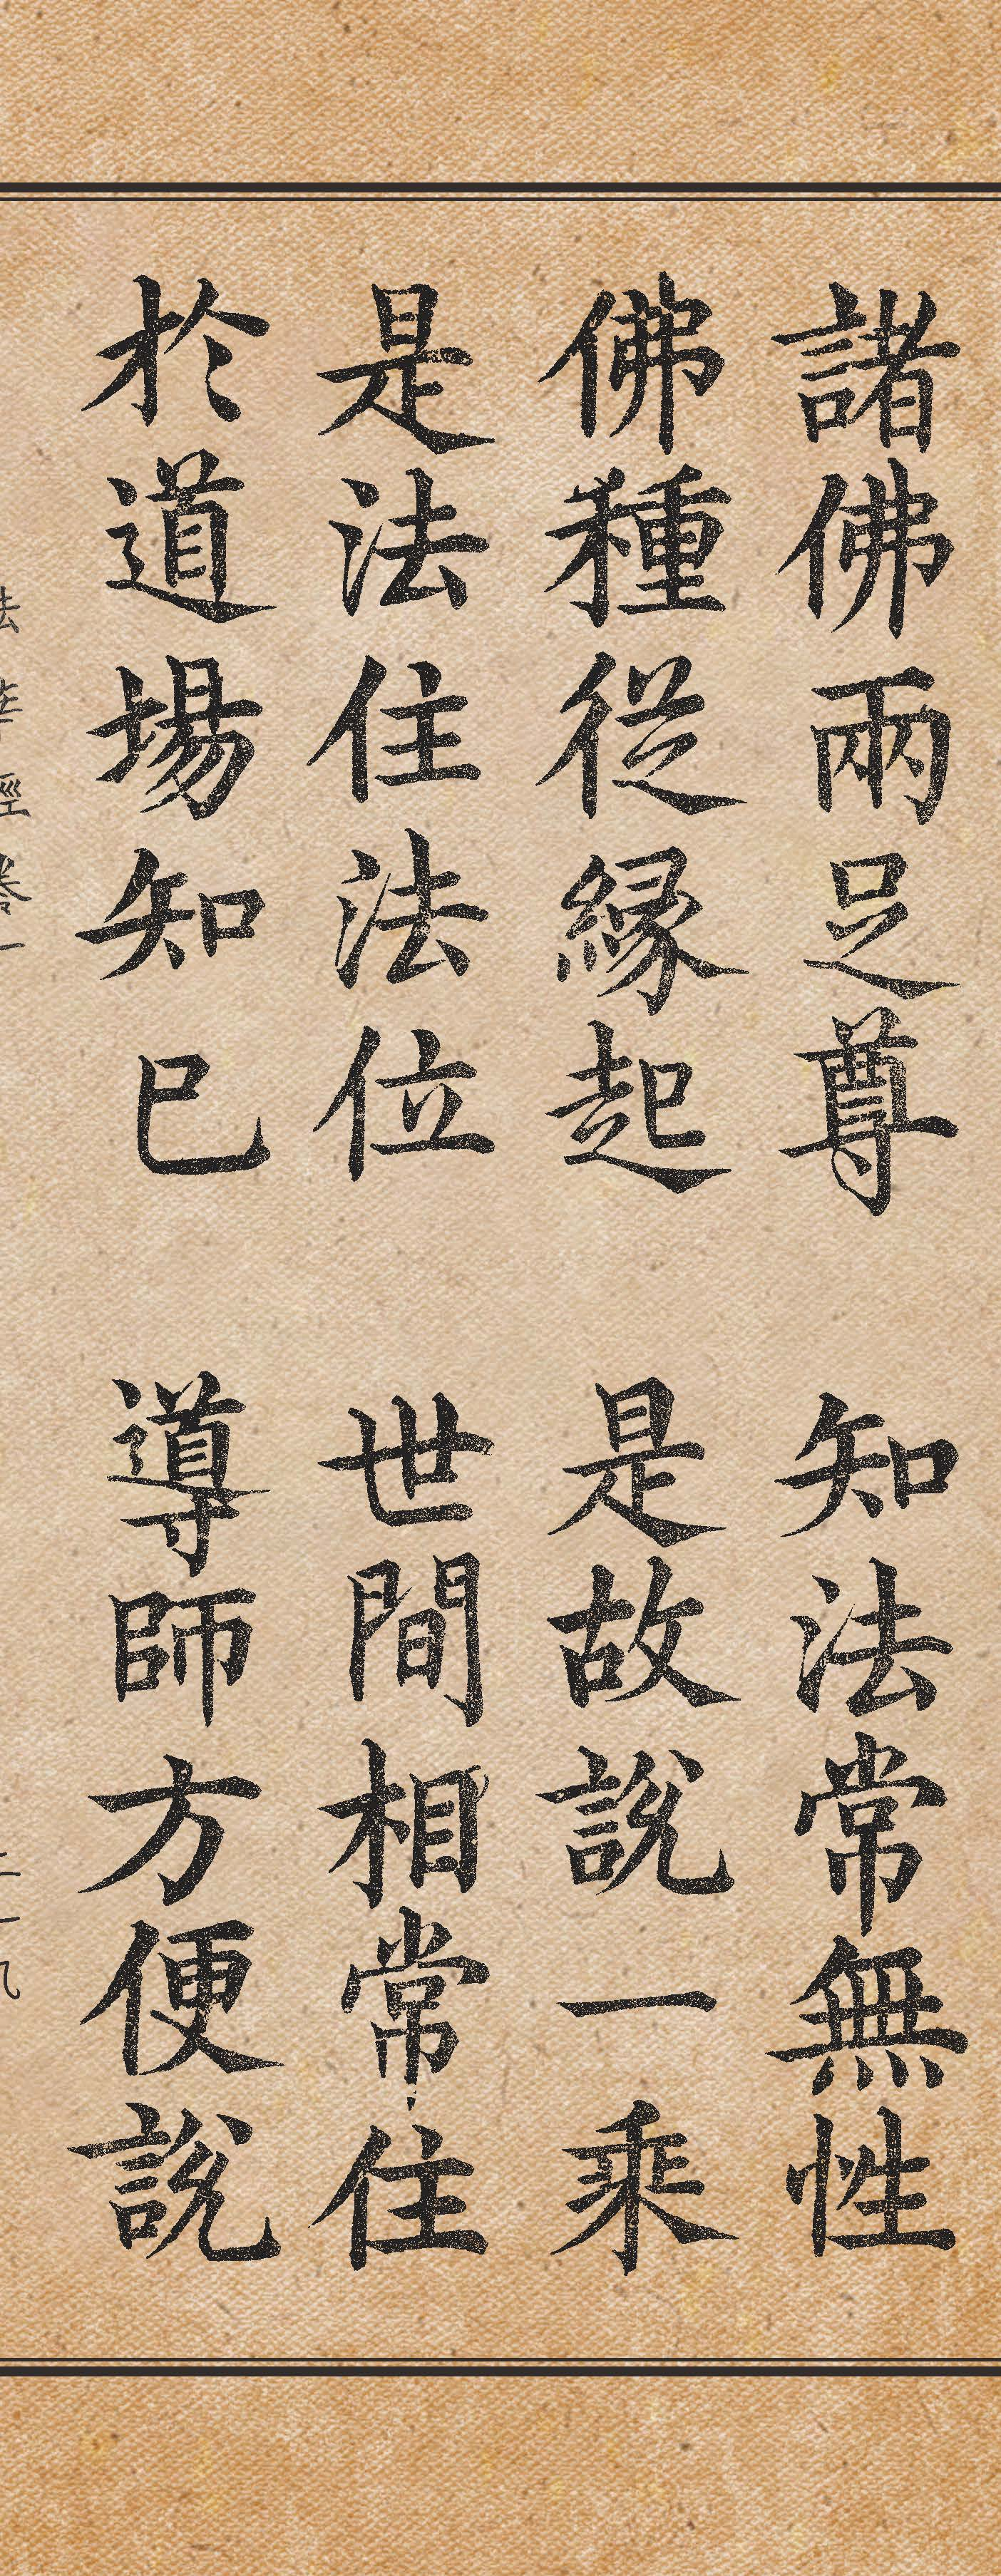 諸佛兩足尊 知法常無性
佛種從緣起 是故說一乘
是法住法位 世間相常住
於道場知已 導師方便說
法華經卷一